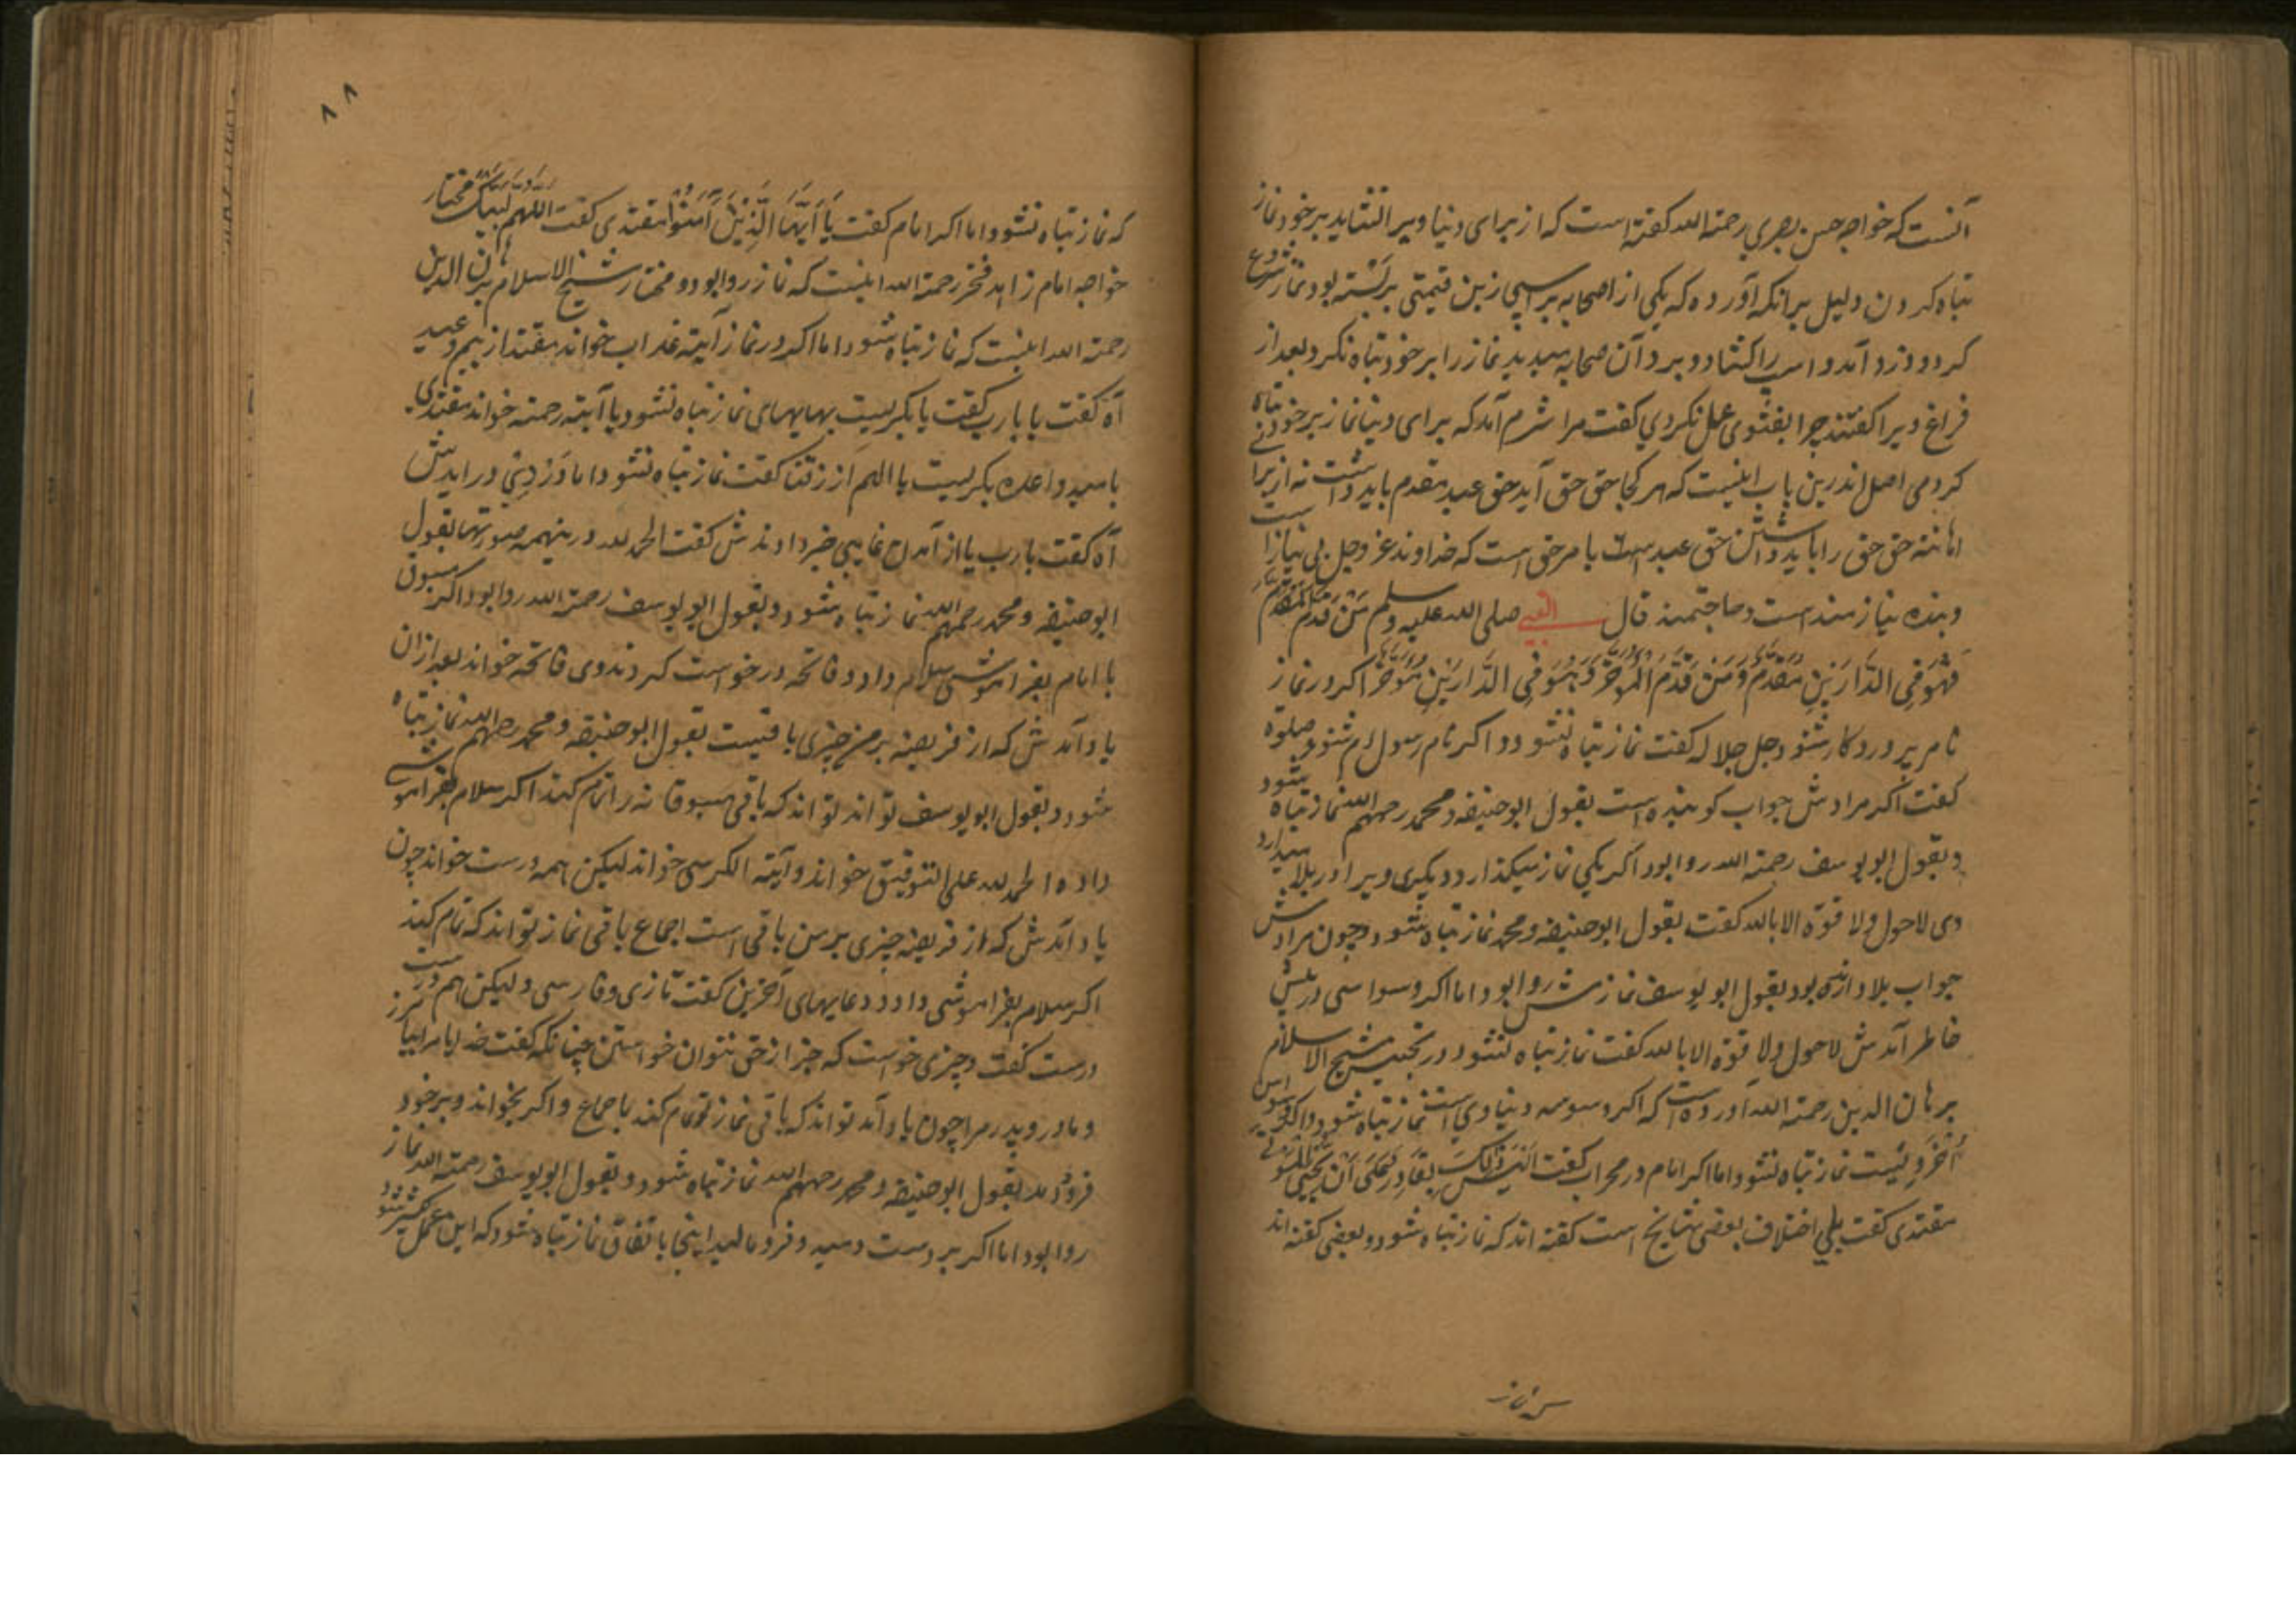 آنست که خواجه حسن بصری رحمة الله کفته است که از برای دنیا ویرا نشاید بر خود نماز
تباه کردن دلیل برانکه آورده که یکی از اصحابه بر اسپی زین قیمتی برنشته بود نماز شروع
کرد و دزد آمد و اسپ را کشاد و برد آن صحابه میدید نماز را بر خود تباه نکرد بعد از
فراغ ویرا کفتند چرا بفتوی عمل نکردی کفت مرا شرم آمد که برای دنیا نماز بر خود تباه
کردمی اصل اندرین باب اینست که هر کجا حق حق آید حق عبد مقدم باید داشت نه از برا
اهانته حق حق را باید داشتن حق عبد است بامر حق است که خداوند عز وجل بی نیاز
وبنده نیازمند است وحاجتمند قال النبی صلی الله علیه وسلم من قدم المقدم
فهو فی الدارین مقدم ومن قدم المؤخر فهو فی الدارین مؤخر اکر در نماز
نام پروردکار شنود جل جلاله کفت نماز تباه نشود و اکر نام رسول شنود صلوة
کفت اکر مرادش جواب کوینده است بقول ابوحنیفه ومحمد رحمهم الله نماز تباه شود
وبقول ابو یوسف رحمة الله روا بود اکر یکی نماز میکذارد و دیکری ویرا در بلا میدارد
وی لاحول ولا قوة الا بالله کفت بقول ابوحنیفه ومحمد نماز تباه شود و چون مرادش
جواب بلا دارنده بود بقول ابو یوسف نمازش روا بود اما اکر وسواسی در
خاطر آمدش لاحول ولا قوة الا بالله کفت نماز تباه نشود در تجنیس شیخ الاسلام
برهان الدین رحمة الله آورده است که اکر وسوسه دنیاوی است نماز تباه شود و اکر وسواس
اخرویست نماز تباه نشود اما اکر امام در محراب کفت الیس ذلک بقادر علی ان یحیی الموتی
مقتدی کفت بلی اختلاف بعضی مشایخ است کفته اند که نماز تباه شود و بعضی کفته اند
که نماز
۸۸
که نماز تباه نشود اما اکر امام کفت یا ایها الذین آمنوا مقتدی کفت اللهم لبیک مختار
خواجه امام زاهد فخر رحمة الله اینست که نماز روا بود و مختار شیخ الاسلام برهان الدین
رحمة الله اینست که نماز تباه شود اما اکر در نماز آیته عذاب خواند مقتد از بیم وعید
آه کفت یا یارب کفت یا بکریست بهایهای نماز تباه نشود یا آیته رحمة خواند مقتدی
بامید واعده بکریست یا اللهم ارزقنا کفت نماز تباه نشود اما در دینی در آیدش
آه کفت یارب یا از آمدن غایبی خبر دادندش کفت الحمد لله درینهمه صورتها بقول
ابوحنیفه ومحمد رحمهم الله نماز تباه شود و بقول ابو یوسف رحمة الله روا بود اکر مسبوق
با امام بفراموشی سلام داد و فاتحه درخواست کردند وی فاتحه خواند بعد ازان
یاد آمدش که از فریضه بر من چیزی باقیست بقول ابوحنیفه ومحمد رحمهم الله نماز تباه
شود و بقول ابو یوسف تواند تواند که باقی مسبوقانه را تمام کند اکر سلام بفراموشی
داده الحمد لله علی التوفیق خواند و آیته الکرسی خواند لیکن همه درست خواند چون
یاد آمدش که از فریضه چیزی بر من باقی است اجماع باقی نماز تواند که تمام کند
اکر سلام بفراموشی داد و دعایهای آخرین کفت تازی وفارسی ولیکن هم درست
درست کفت وچیزی خواست که جز از حق نتوان خواستن چنانکه کفت خدایا مرا بیامرز
ومادر وپدر مرا چون یاد آمد تواند که باقی نماز تمام کند باجماع واکر بخواند وبر خود
فرود مد بقول ابوحنیفه ومحمد رحمهم الله نماز تباه شود و بقول ابو یوسف رحمة الله نماز
روا بود اما اکر بر دست دمید و فرو مالید اینجا باتفاق نماز تباه شود که این عمل کثیر شود